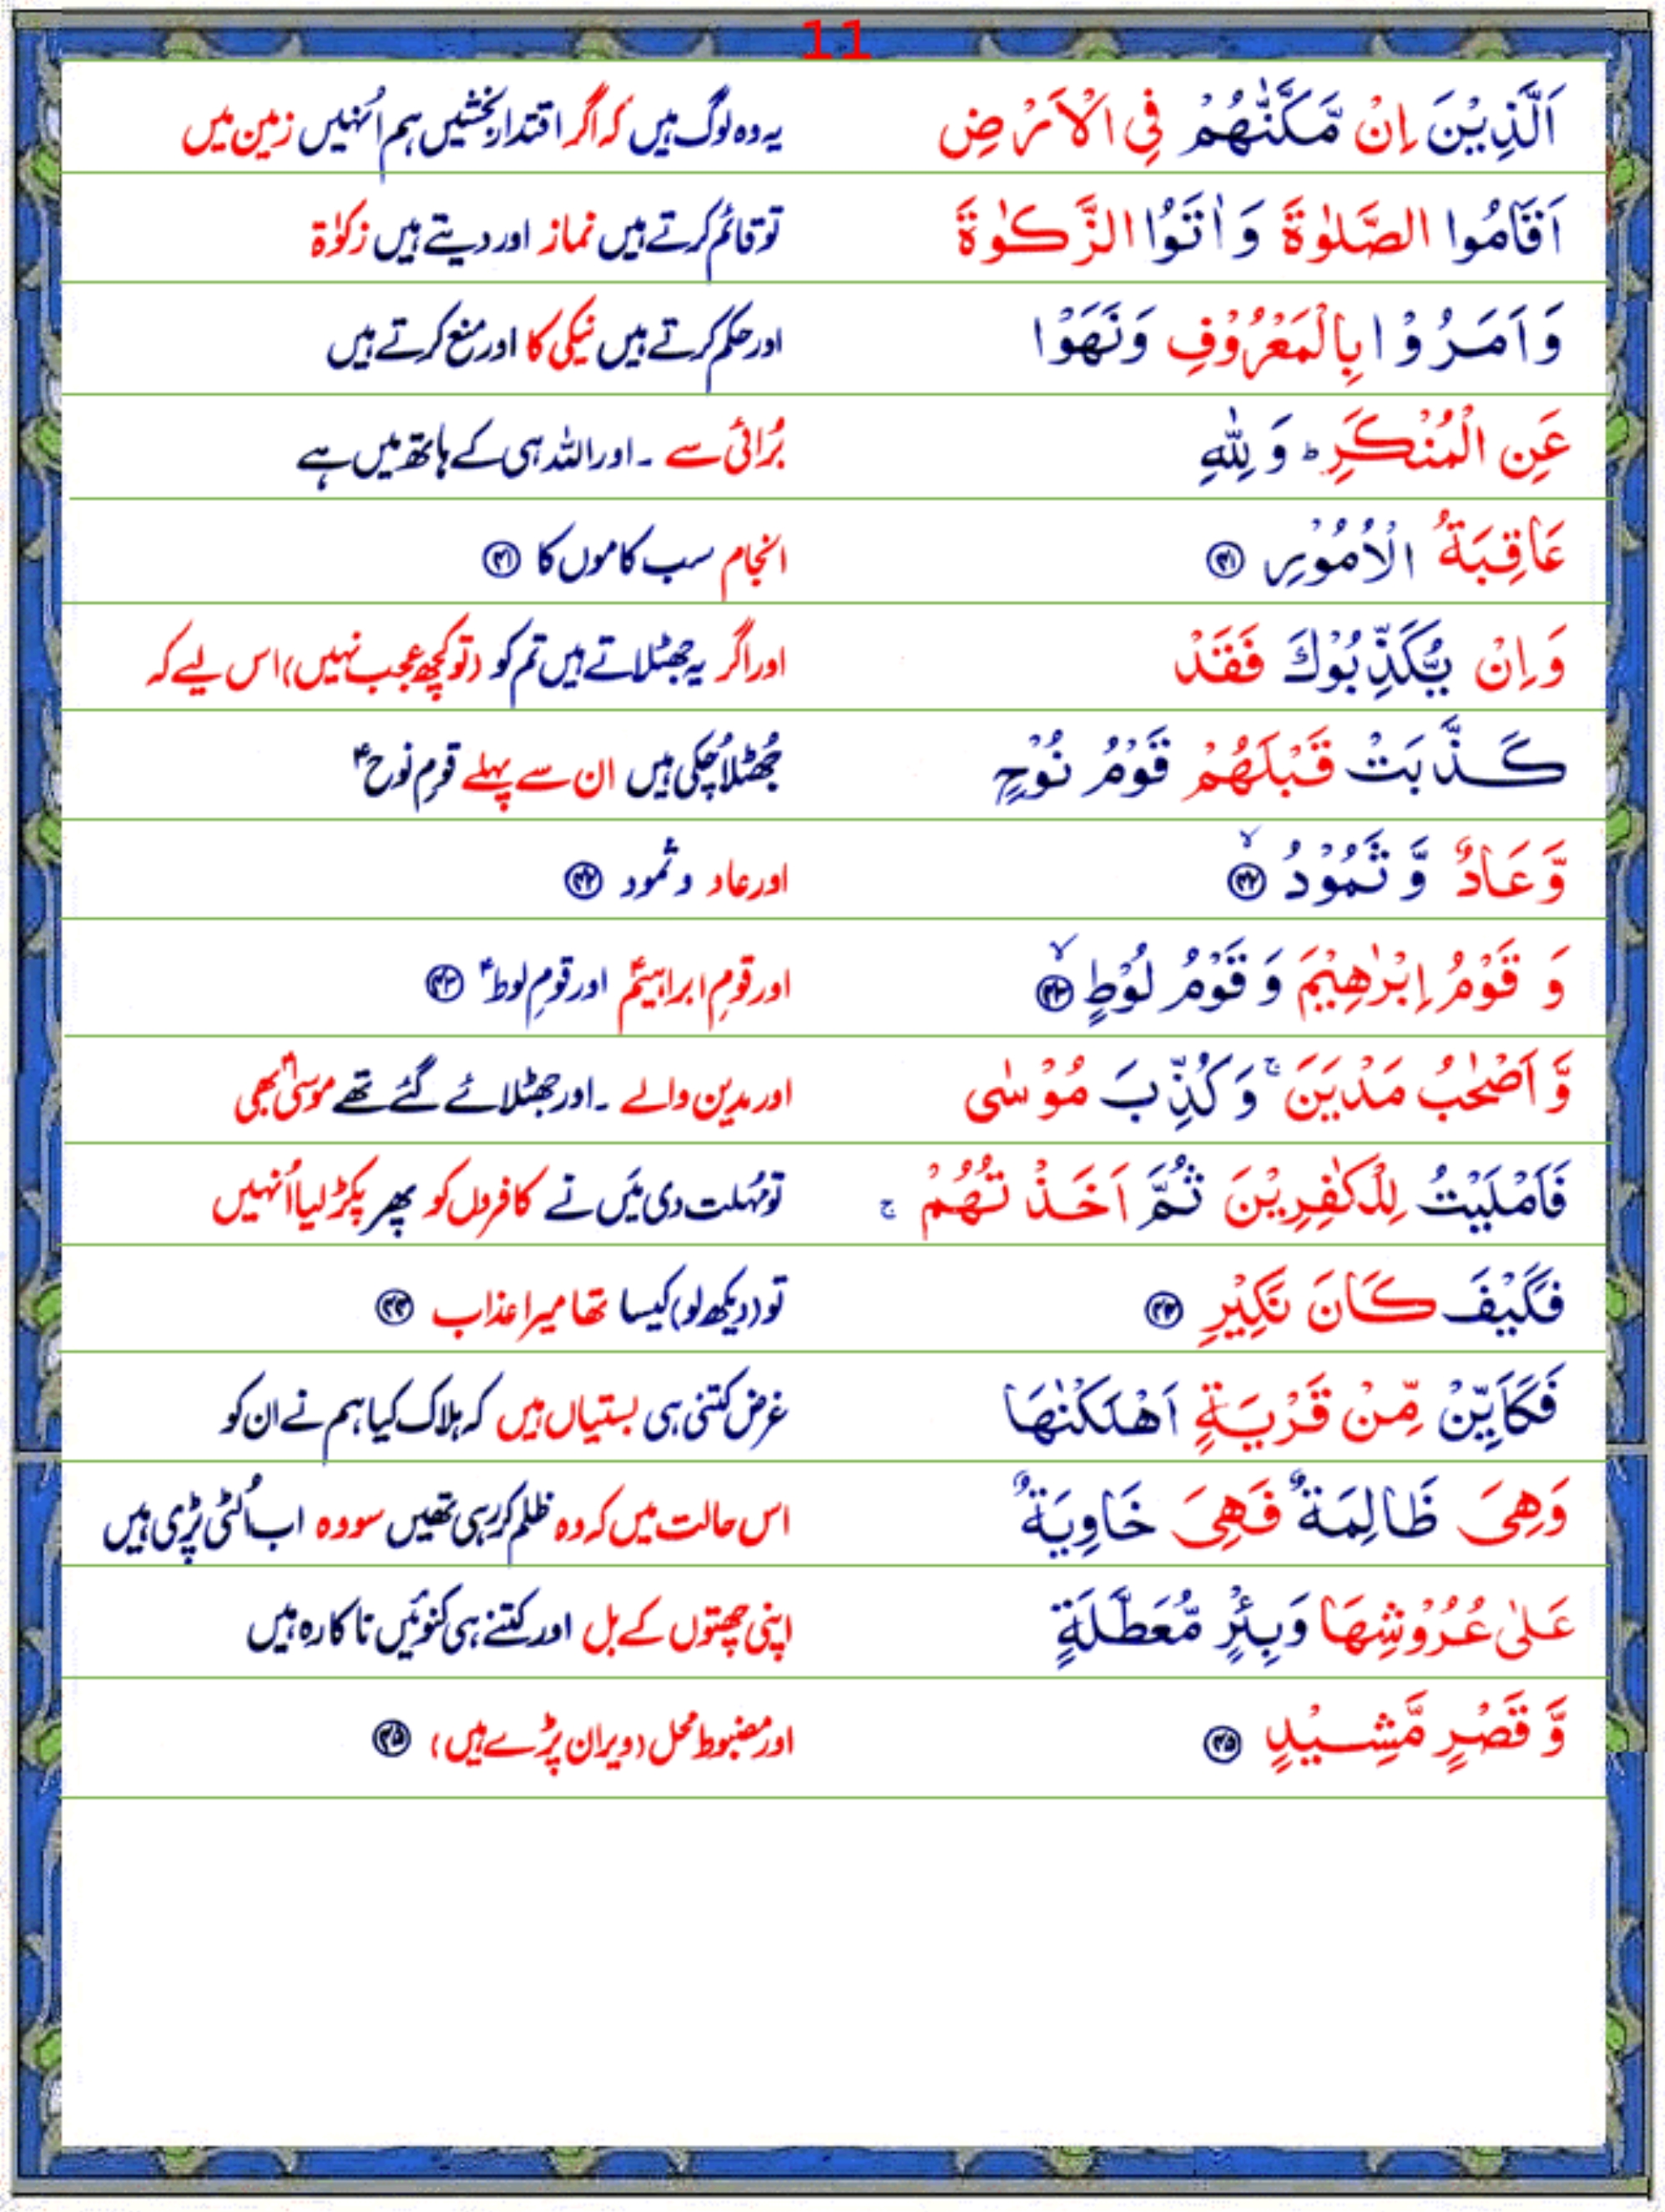 11
اَلَّذِیْنَ اِنْ مَّكَّنّٰهُمْ فِی الْاَرْضِ یہ وہ لوگ ہیں کہ اگر اقتدار بخشیں ہم اُنہیں زمین میں
اَقَامُوا الصَّلٰوةَ وَ اٰتَوُا الزَّكٰوةَ تو قائم کرتے ہیں نماز اور دیتے ہیں زکوٰۃ
وَ اَمَرُوْا بِالْمَعْرُوْفِ وَ نَهَوْا اور حکم کرتے ہیں نیکی کا اور منع کرتے ہیں
عَنِ الْمُنْكَرِ ؕ وَ لِلّٰهِ بُرائی سے ۔ اور اللہ ہی کے ہاتھ میں ہے
عَاقِبَةُ الْاُمُوْرِ ﴿۴۱﴾ انجام سب کاموں کا ﴿۴۱﴾
وَ اِنْ یُّكَذِّبُوْكَ فَقَدْ اور اگر یہ جھٹلاتے ہیں تم کو (تو کچھ عجب نہیں) اس لیے کہ
كَذَّبَتْ قَبْلَهُمْ قَوْمُ نُوْحٍ جُھٹلا چُکی ہیں ان سے پہلے قومِ نوح ؑ
وَّ عَادٌ وَّ ثَمُوْدُ ﴿۴۲﴾ۙ اور عاد و ثمود ﴿۴۲﴾
وَ قَوْمُ اِبْرٰهِیْمَ وَ قَوْمُ لُوْطٍ ﴿۴۳﴾ۙ اور قومِ ابراہیم ؑ اور قومِ لوط ؑ ﴿۴۳﴾
وَّ اَصْحٰبُ مَدْیَنَ ۚ وَ كُذِّبَ مُوْسٰی اور مدین والے ۔ اور جھٹلائے گئے تھے موسیٰ ؑ بھی
فَاَمْلَیْتُ لِلْكٰفِرِیْنَ ثُمَّ اَخَذْتُهُمْ ۚ تو مُہلت دی میَں نے کافروں کو پھر پکڑ لیا اُنہیں
فَكَیْفَ كَانَ نَكِیْرِ ﴿۴۴﴾ تو (دیکھ لو) کیسا تھا میرا عذاب ﴿۴۴﴾
فَكَاَیِّنْ مِّنْ قَرْیَةٍ اَهْلَكْنٰهَا غرض کتنی ہی بستیاں ہیں کہ ہلاک کیا ہم نے ان کو
وَ هِیَ ظَالِمَةٌ فَهِیَ خَاوِیَةٌ اس حالت میں کہ وہ ظلم کر رہی تھیں سو وہ اب اُلٹی پڑی ہیں
عَلٰی عُرُوْشِهَا وَ بِئْرٍ مُّعَطَّلَةٍ اپنی چھتوں کے بل اور کتنے ہی کنوئیں ناکارہ ہیں
وَّ قَصْرٍ مَّشِیْدٍ ﴿۴۵﴾ اور مضبوط محل (ویران پڑے ہیں) ﴿۴۵﴾